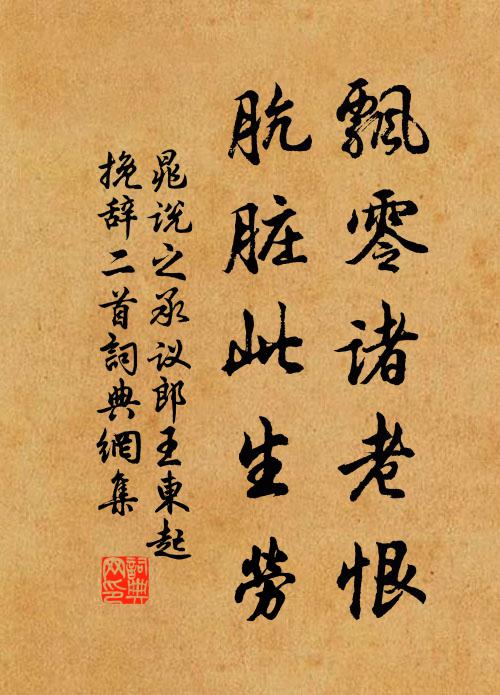 飄零诸老恨
肮脏此生勞
晁说之承议郎王東起
挽辞二首詞典網集
詞典网印